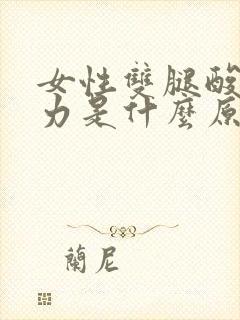 女性雙腿酸
力是什麼原
蘭尼